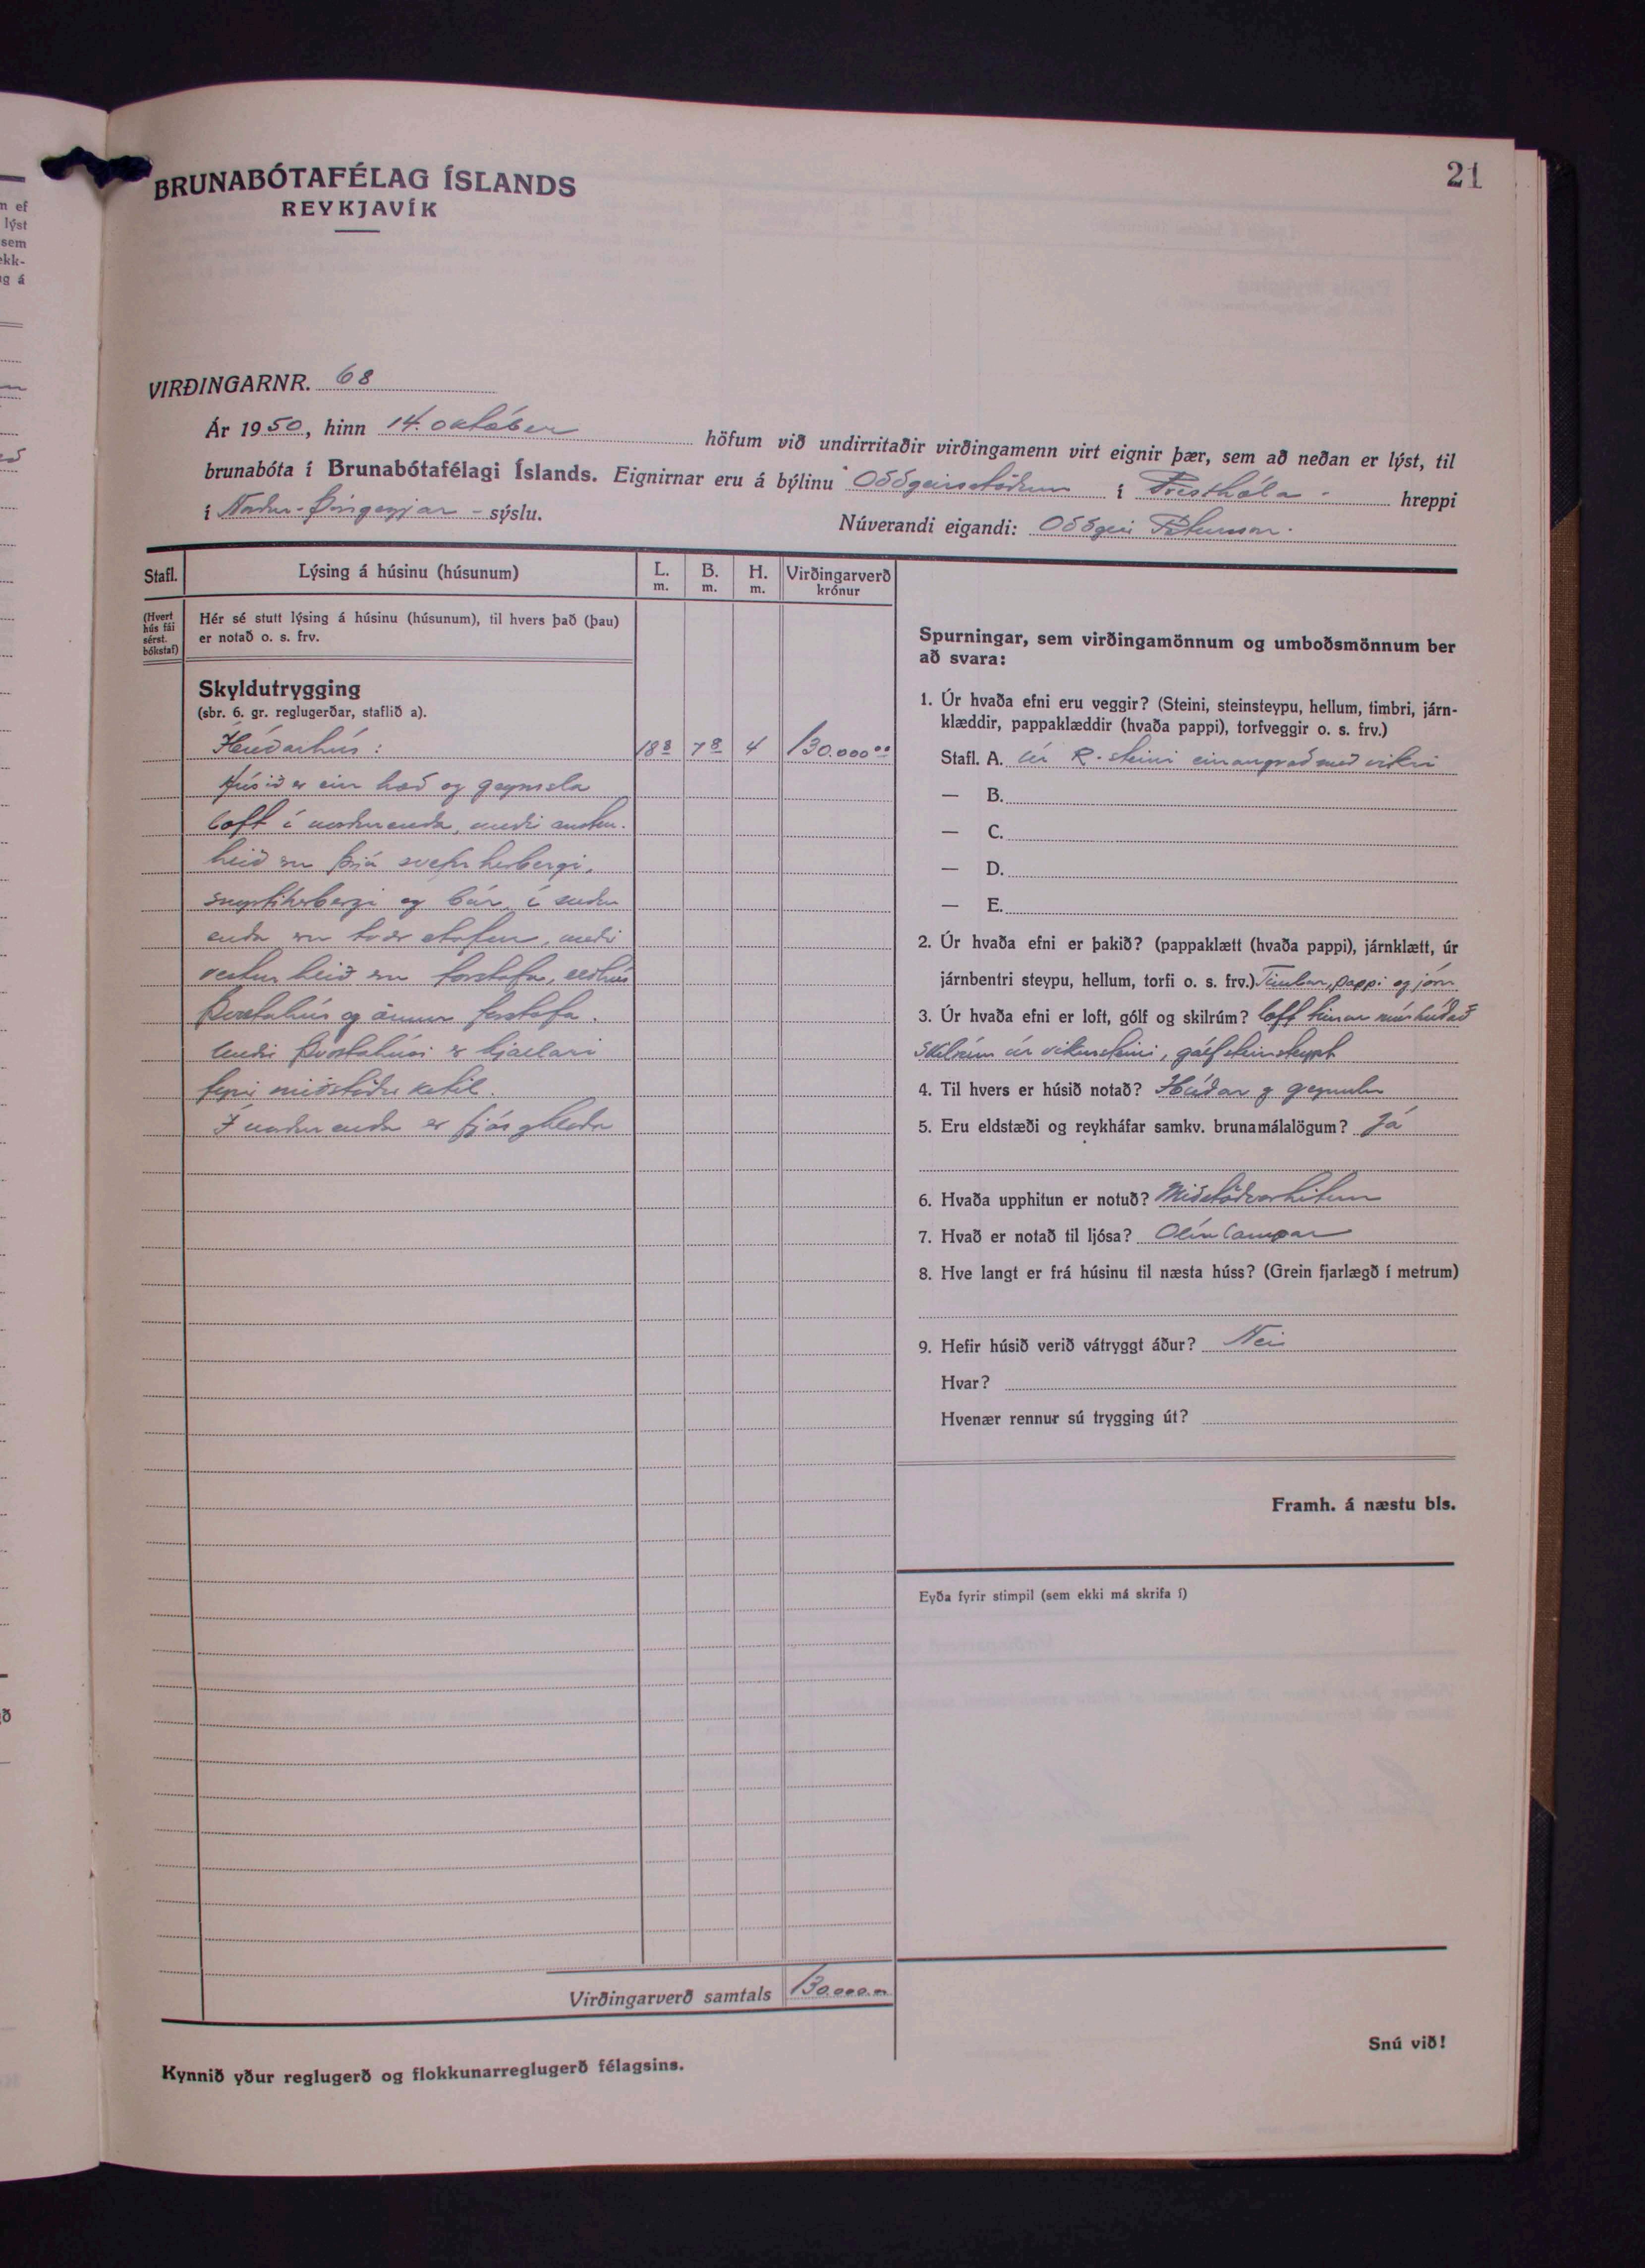 21
BRUNABÓTAFÉLAG ÍSLANDS
REYKJAVÍK
VIRÐINGARNR. 68
Ár 1950, hinn 14. október höfum við undirritaðir virðingamenn virt eignir þær, sem að neðan er lýst, til
brunabóta í Brunabótafélagi Íslands. Eignirnar eru á býlinu Oddgeirsstöðum í Presthóla- hreppi
í Norður-Þingeyjar- sýslu.
Núverandi eigandi: Oddgeir Pétursson.
Stafl.
Lýsing á húsinu (húsunum)
L. m.
B. m.
H. m.
Virðingarverð krónur
(Hvert hús fái sérst. bókstaf)
Hér sé stutt lýsing á húsinu (húsunum), til hvers það (þau)
er notað o. s. frv.
Skyldutrygging
(sbr. 6. gr. reglugerðar, staflið a).
Íbúðarhús: 18 8 7 8 4 130.000 00
Húsið er ein hæð og geymsla
loft í norðurenda, með austur-
hlið eru þrjú svefnherbergi,
snyrtiherbergi og búr, í suður
enda eru tvær stofur, með
vestur hlið eru forstofa, eldhús
Þvottahús og önnur forstofa.
Undir þvottahúsi er kjallari
fyrir miðstöðvarketil.
Í norðurenda er fjós og hlaða
Virðingarverð samtals 130.000.00
Kynnið yður reglugerð og flokkunarreglugerð félagsins.
Spurningar, sem virðingamönnum og umboðsmönnum ber
að svara:
1. Úr hvaða efni eru veggir? (Steini, steinsteypu, hellum, timbri, járn-
klæddir, pappaklæddir (hvaða pappi), torfveggir o. s. frv.)
Stafl. A. Úr R-steini einangrað með vikri
— B.
— C.
— D.
— E.
2. Úr hvaða efni er þakið? (pappaklætt (hvaða pappi), járnklætt, úr
járnbentri steypu, hellum, torfi o. s. frv.) Timbur, pappi og járn
3. Úr hvaða efni er loft, gólf og skilrúm? loft múrhúðað
Skilrúm úr vikursteini, gólf steinsteypt
4. Til hvers er húsið notað? Íbúðar og geymslu
5. Eru eldstæði og reykháfar samkv. brunamálalögum? Já
6. Hvaða upphitun er notuð? Miðstöðvarhitun
7. Hvað er notað til ljósa? Olíulampar
8. Hve langt er frá húsinu til næsta húss? (Grein fjarlægð í metrum)
9. Hefir húsið verið vátryggt áður? Nei
Hvar?
Hvenær rennur sú trygging út?
Framh. á næstu bls.
Eyða fyrir stimpil (sem ekki má skrifa í)
Snú við!